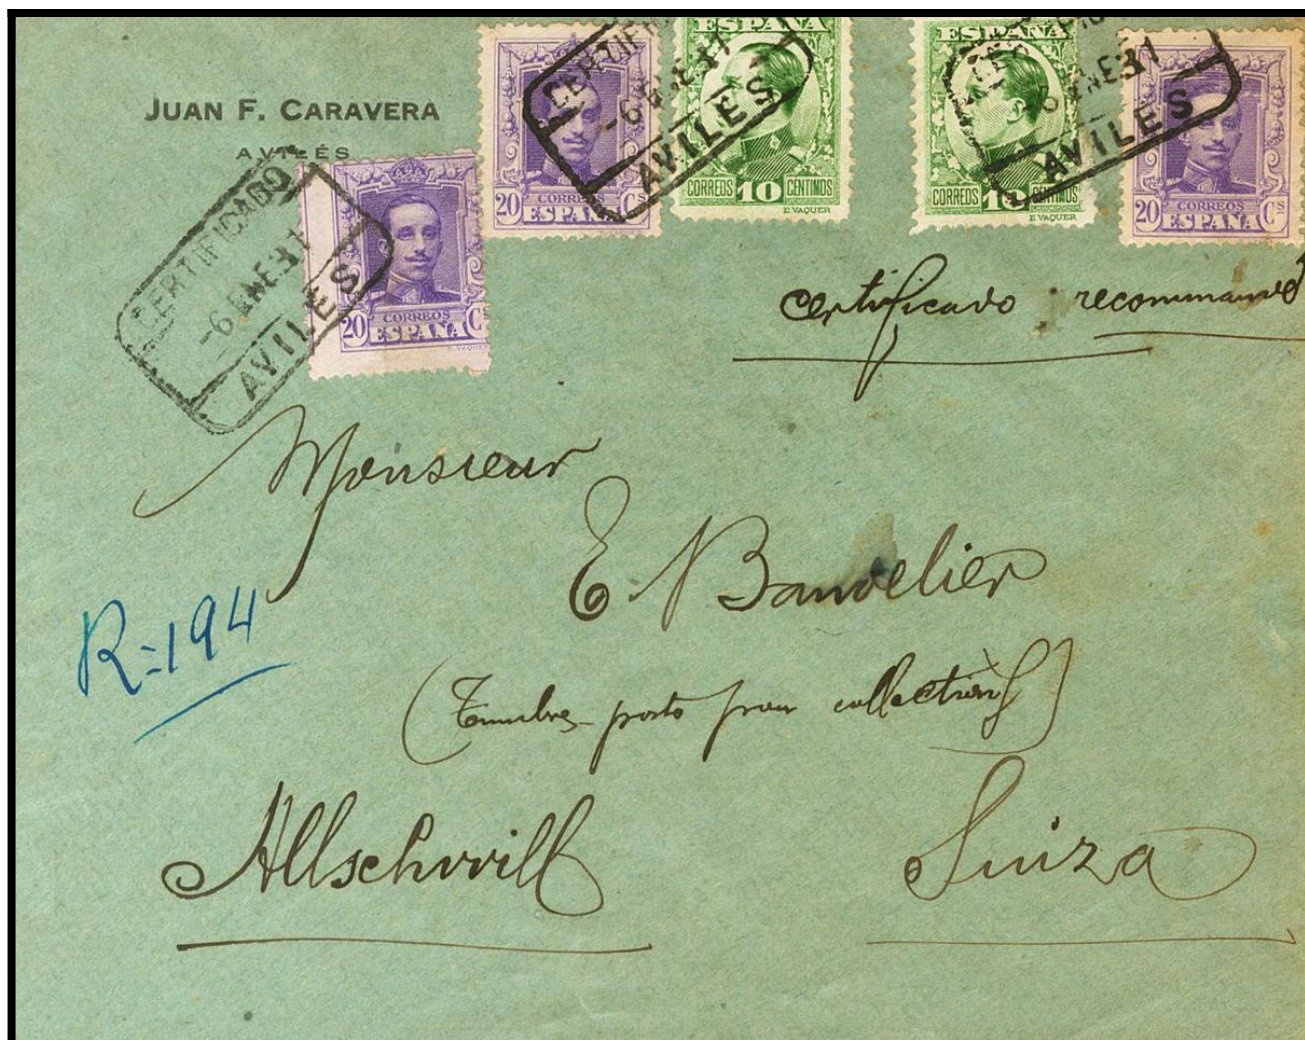 JUAN F. CARAVERA
AVILÉS
CERTIFICADO
-6 ENE 31
AVILES
20 CORREOS Cs
ESPAÑA
E. VAQUER
CERTIFI
-6 ENE 31
AVILES
20 CORREOS Cs
ESPAÑA
ESPAÑA
CORREOS 10 CENTIMOS
E. VAQUER
ESPAÑA
CORREOS 10 CENTIMOS
E. VAQUER
6 ENE 31
AVILES
20 CORREOS Cs
ESPAÑA
certificado recommandé
Monsieur
E Bandelier
R=194
(Timbres-posts pour collections)
Allschwill Suiza